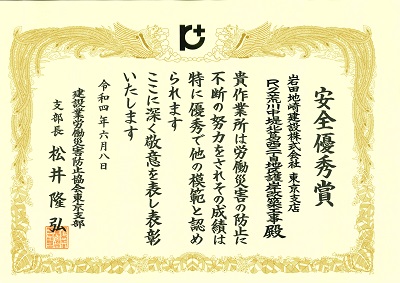 安全優秀賞
岩田地崎建設株式会社 東京支店
R2荒川中堤北葛西二丁目地区護岸改築工事 殿
貴作業所は労働災害の防止に
不断の努力をされその成績は
特に優秀で他の模範と認め
られます
ここに深く敬意を表し表彰
いたします
令和四年六月八日
建設業労働災害防止協会東京支部
支部長 松井隆弘